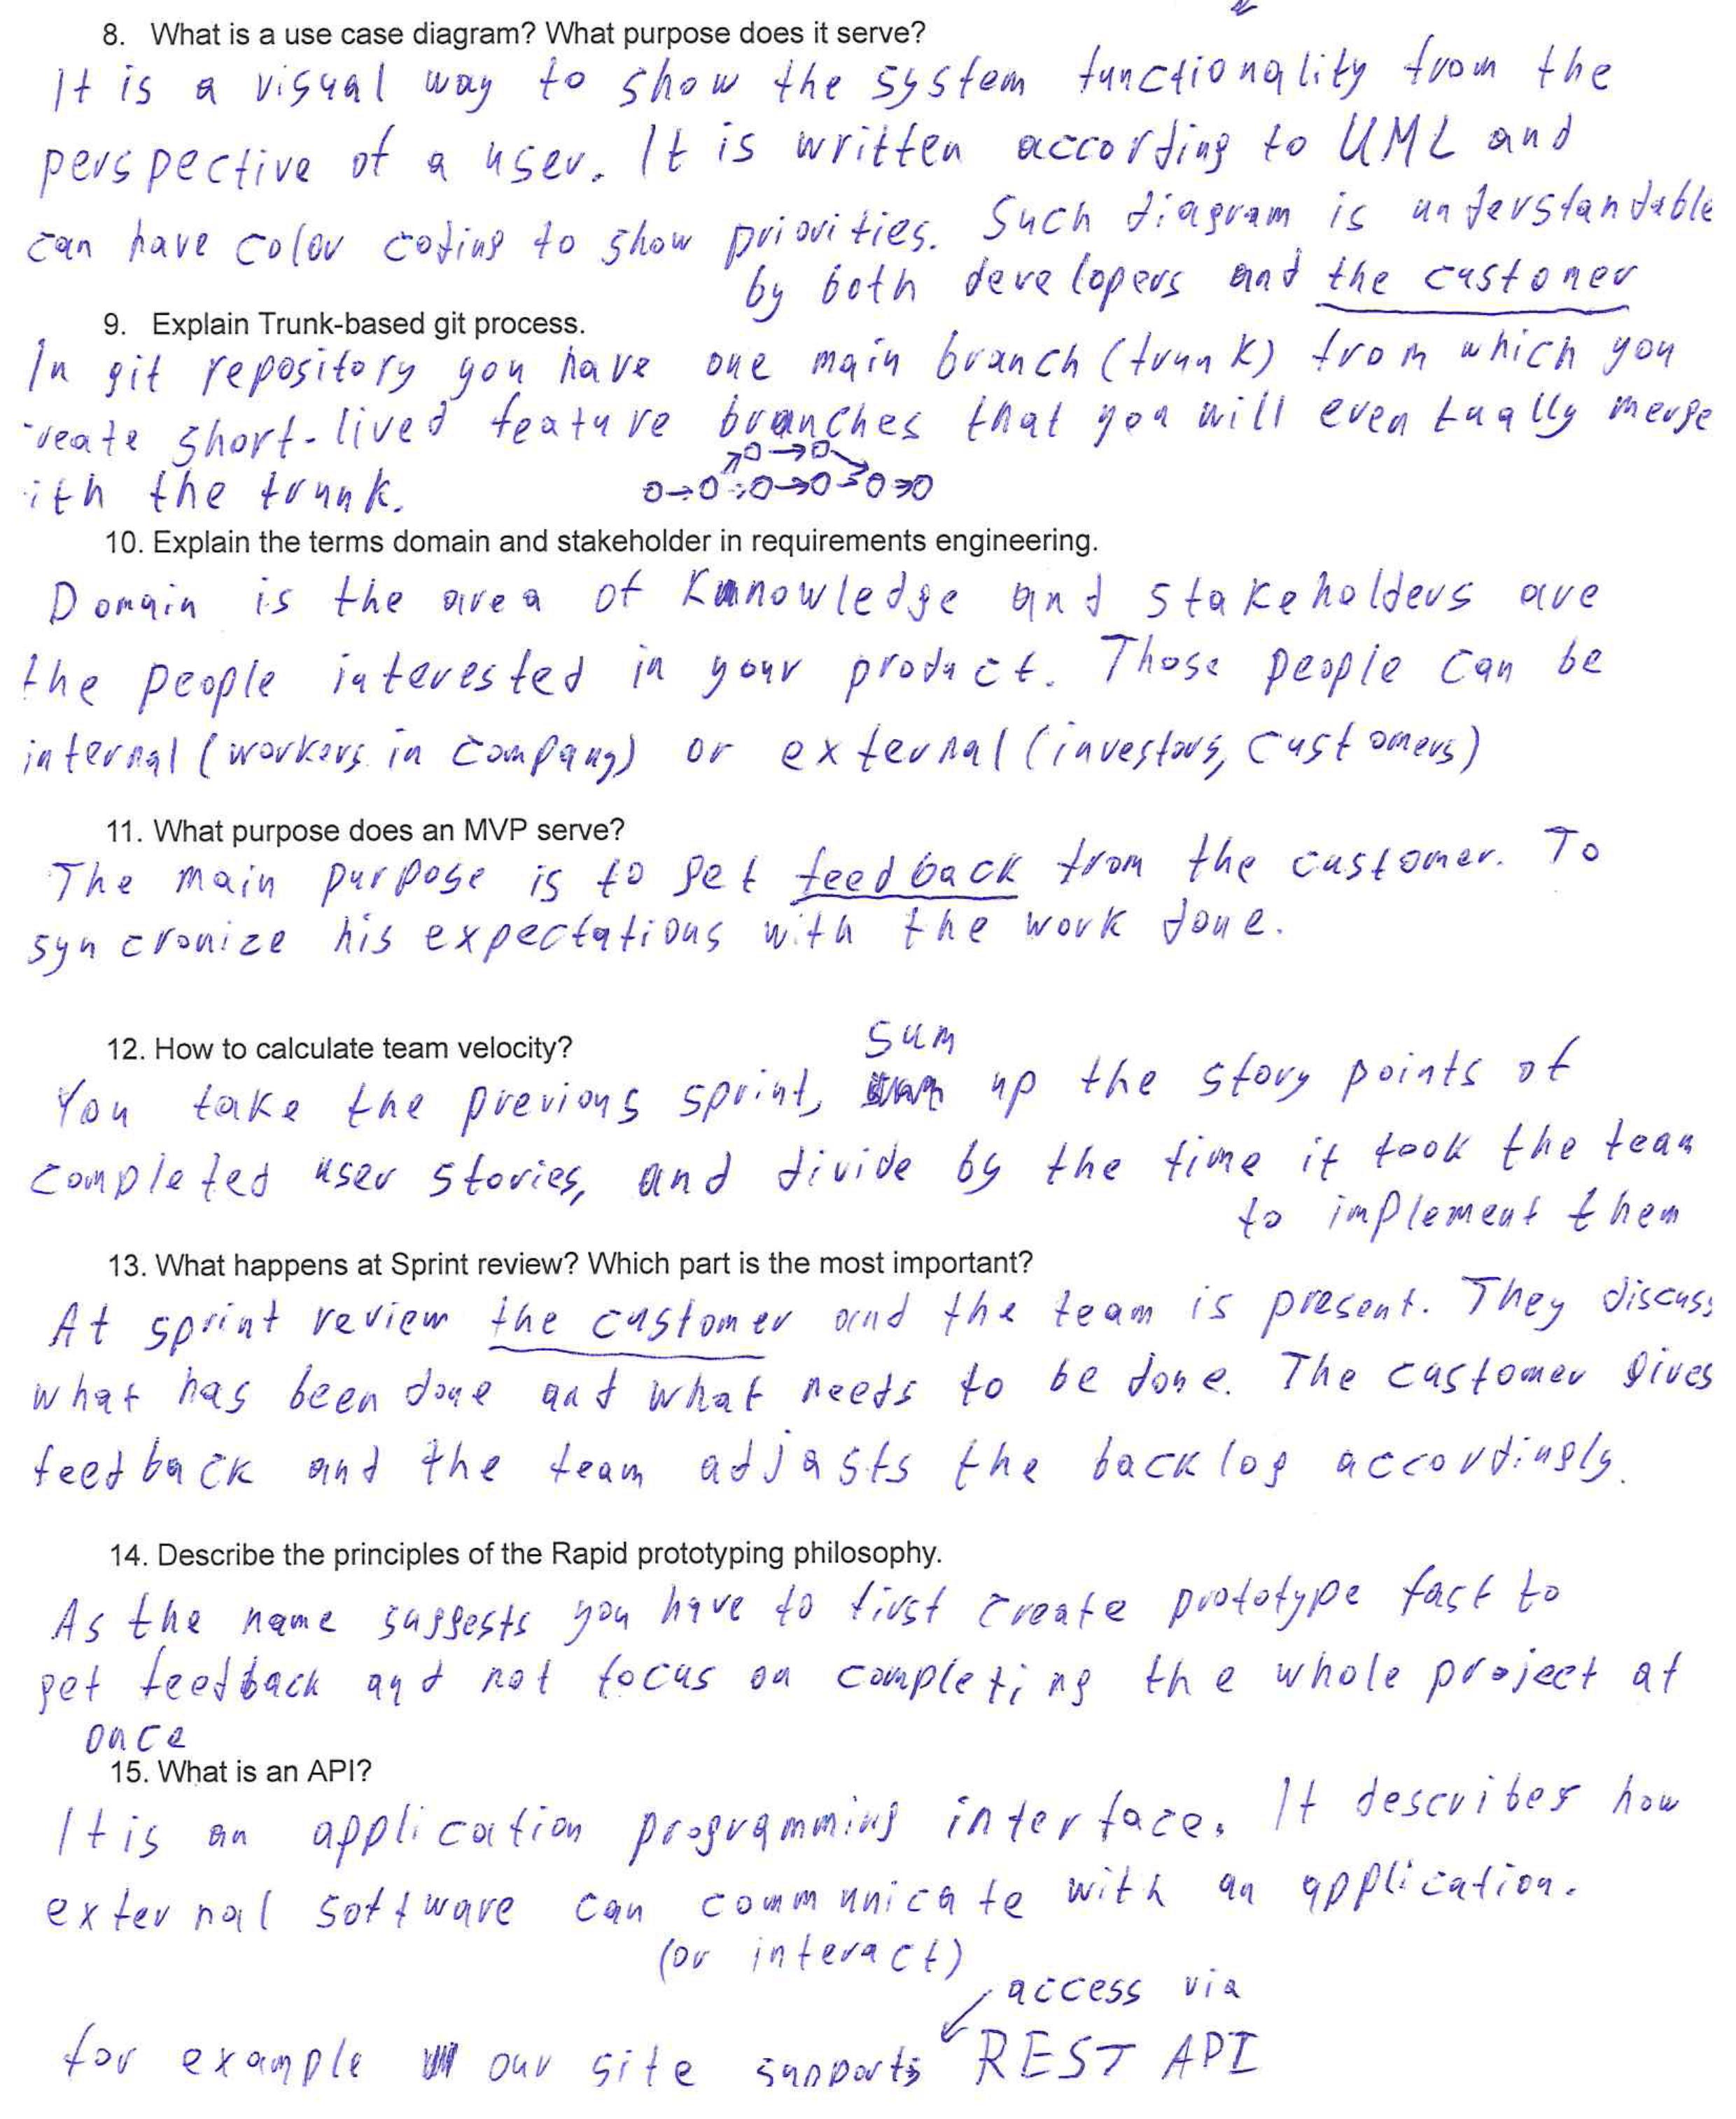 8. What is a use case diagram? What purpose does it serve?
It is a visual way to show the system functionality from the
perspective of a user. It is written according to UML and
can have color coding to show priorities. Such diagram is understandable
by both developers and the customer
9. Explain Trunk-based git process.
In git repository you have one main branch (trunk) from which you
reate short-lived feature branches that you will eventually merge
ith the trunk.
10. Explain the terms domain and stakeholder in requirements engineering.
Domain is the area of Knowledge and stakeholders are
the people interested in your product. Those people can be
internal (workers in company) or external (investors, customers)
11. What purpose does an MVP serve?
The main purpose is to get feedback from the customer. To
syncronize his expectations with the work done.
12. How to calculate team velocity?
sum
You take the previous sprint, up the story points of
completed user stories, and divide by the time it took the team
to implement them
13. What happens at Sprint review? Which part is the most important?
At sprint review the customer and the team is present. They discuss
what has been done and what needs to be done. The customer gives
feedback and the team adjasts the backlog accordingly.
14. Describe the principles of the Rapid prototyping philosophy.
As the name suggests you have to first create prototype fast to
get feedback and not focus on completing the whole project at
once
15. What is an API?
It is an application programming interface. It describes how
external software can communicate with an application.
(or interact)
access via
for example our site supports REST API